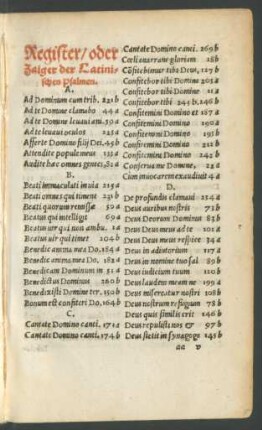 Register/ oder
Zaiger der Latini-
schen Psalmen.
A.
Ad Dominum cum trib. 221 b
Ad te Domine clamabo 44 a
Ad te Domine leuaui am. 39 a
Ad te leuaui oculos 223 a
Afferte Domino filij Dei, 45 b
Attendite popule meus 133 a
Audite haec omnes gentes, 82 a
B.
Beati immaculati in uia 215 a
Beati omnes qui timent 231 b
Beati quorum remissae 50 a
Beatus qui intelligit 69 a
Beatus uir qui non ambu. 1 a
Beatus uir qui timet 204 b
Benedic anima mea Do. 184 a
Benedic anima mea Do. 182 a
Benedicam Dominum in 51 a
Benedictus Dominus 260 b
Benedixisti Domine ter. 150 b
Bonum est confiteri Do, 164 b
C.
Cantate Domino canti. 171 a
Cantate Domino canti. 174 b
Cantate Domino canti. 269 b
Coeli enarrant gloriam 28 b
Confitebimur tibi Deus, 129 b
Confitebor tibi Domine 203 a
Confitebor tibi Domine 11 a
Confitebor tibi 244 b, 246 b
Confitemini Domino et 187 a
Confitemini Domino
Confitemini Domino 191 b
Confitemini Domino 211 b
Confitemini Domino 242 b
Conserua me Domine, 22 a
Cum inuocarem exaudiuit 4 a
D.
De profundis clamaui 234 a
Deus auribus nostris 77 b
Deus Deorum Dominus 83 b
Deus Deus meus ad te 101 a
Deus Deus meus respice 34 a
Deus in adiutorium 117 a
Deus in nomine tuo sal 89 b
Deus iudicium tuum 120 b
Deus laudem meam ne 199 a
Deus misereatur nostri 106 b
Deus noster refugium 78 b
Deus quis similis erit 146 b
Deus repulisti nos & 97 b
Deus stetit in synagoga 145 b
aa v